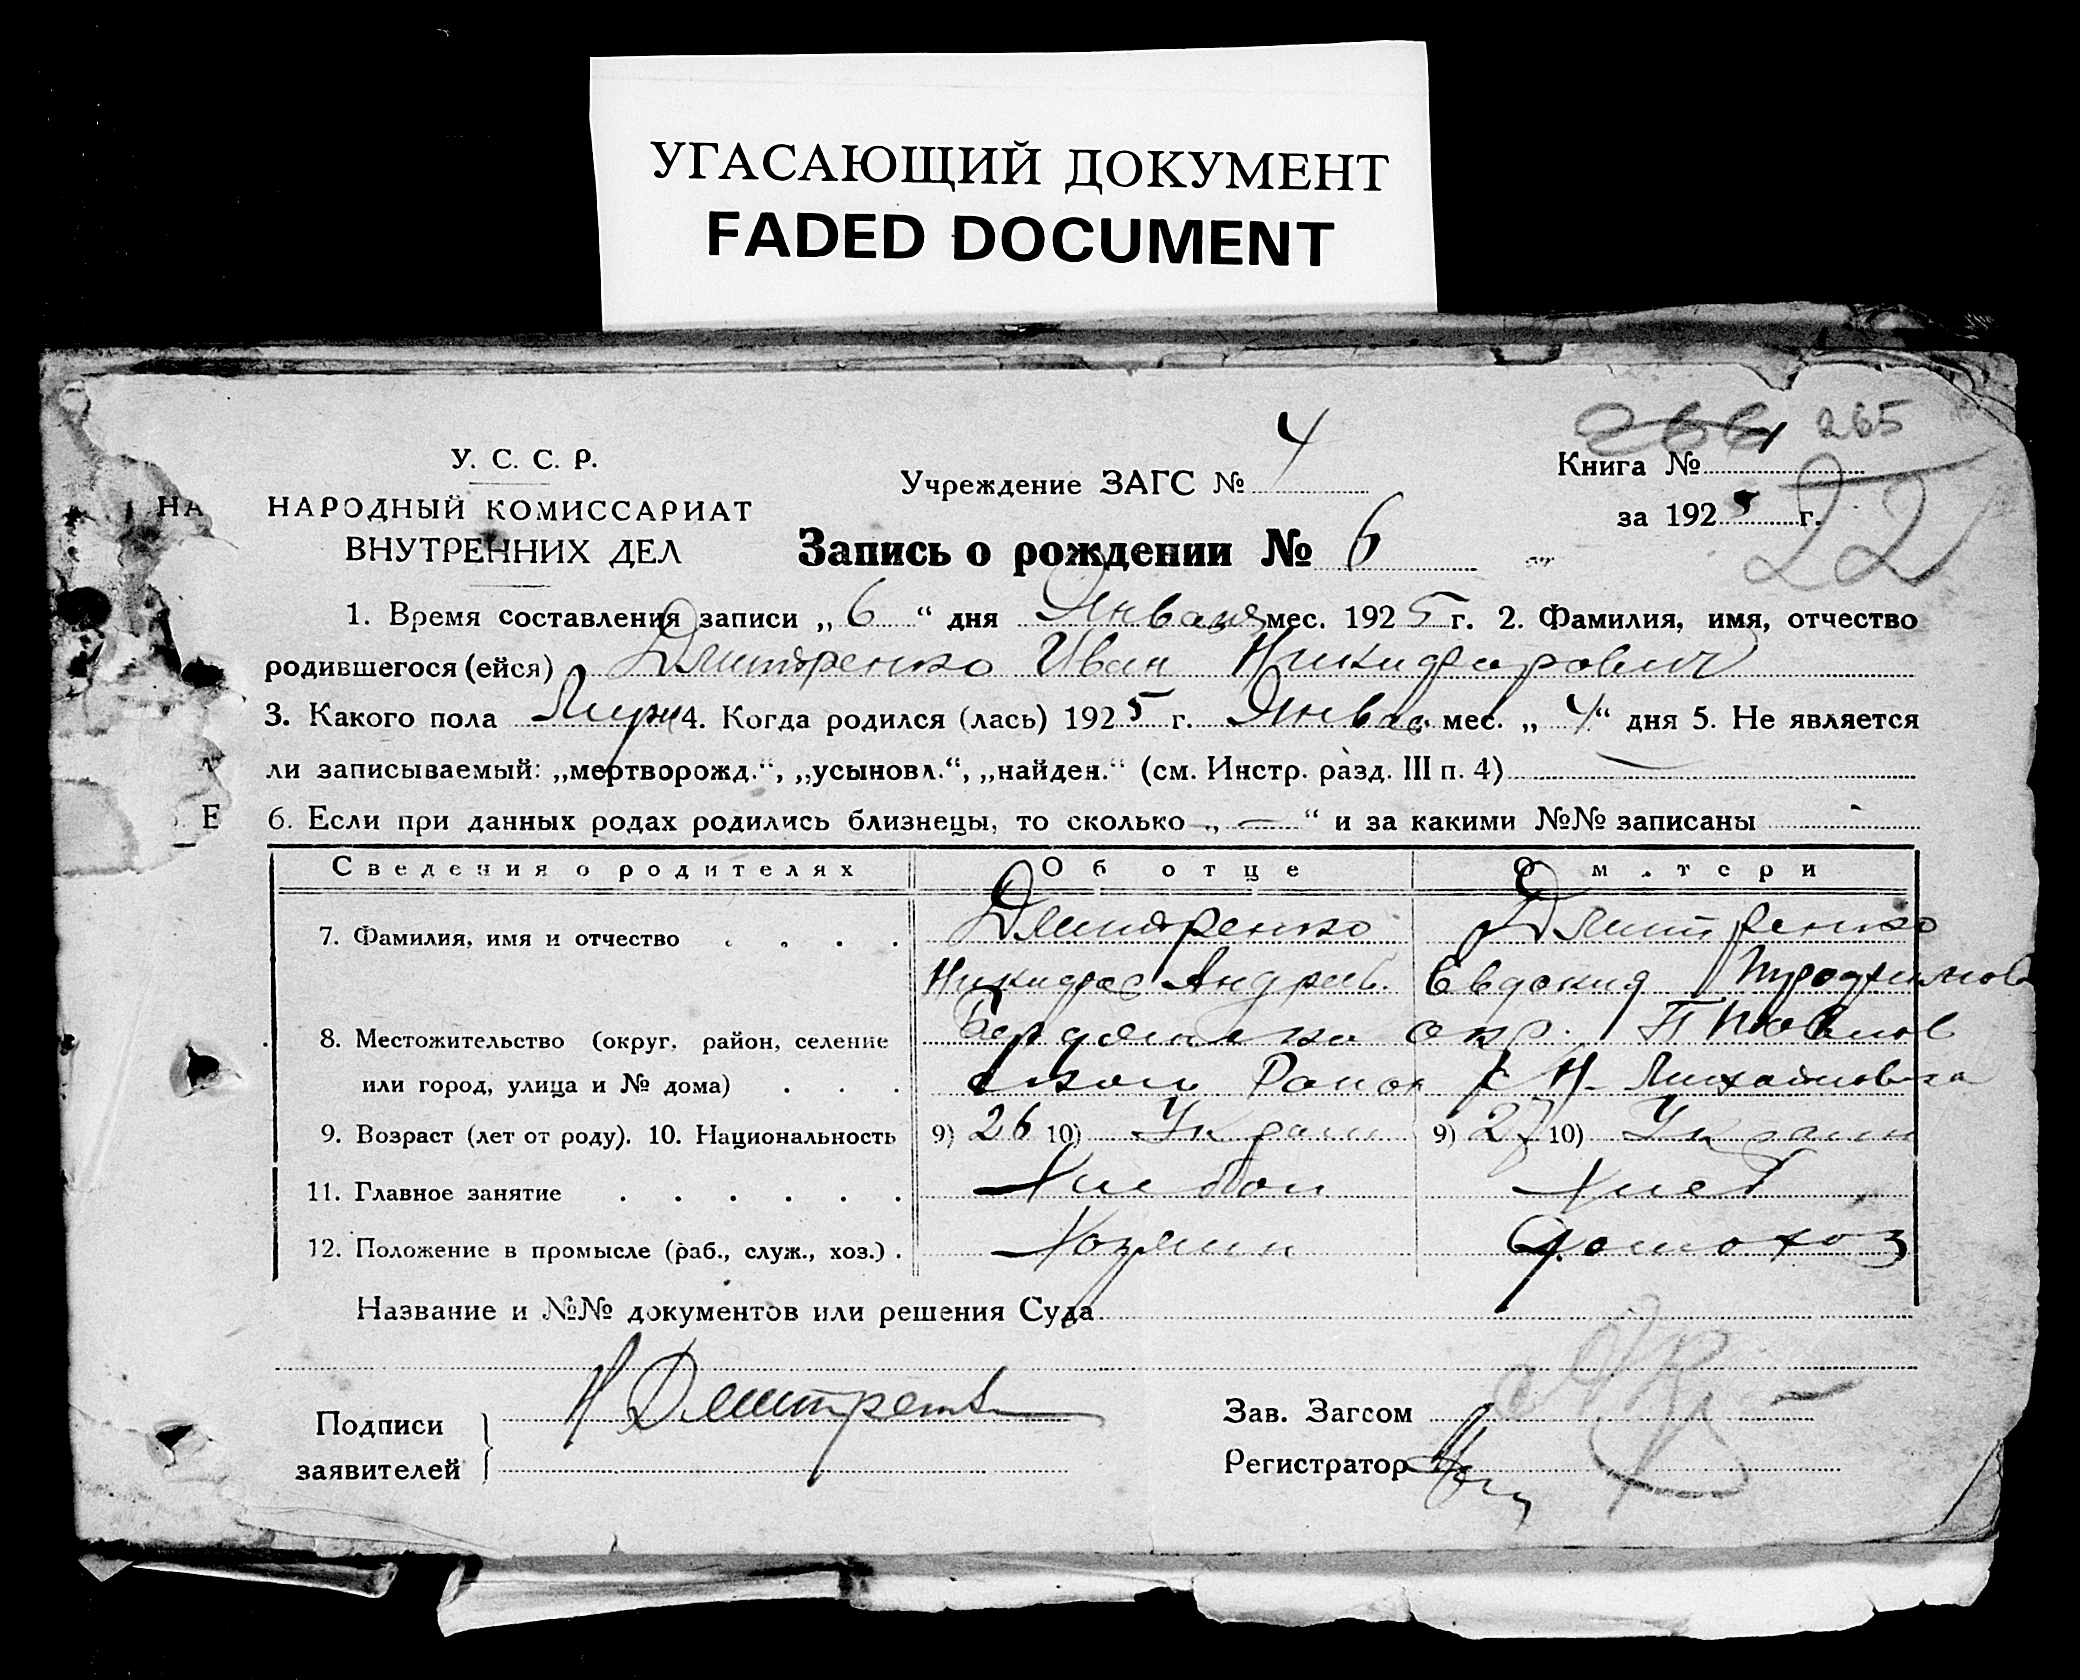 УГАСАЮЩИЙ ДОКУМЕНТ
FADED DOCUMENT
265
У. С. С. Р.
НАРОДНЫЙ КОМИССАРИАТ
ВНУТРЕННИХ ДЕЛ
Учреждение ЗАГС № 4
Книга №
за 1925 г.
22
Запись о рождении № 6
НА
Е
1. Время составления записи „ 6 “ дня Января мес. 1925 г. 2. Фамилия, имя, отчество
родившегося (ейся) Дмитренко Иван Никифорович
3. Какого пола Муж 4. Когда родился (лась) 1925 г. Янва мес. „ 4 “ дня 5. Не является
ли записываемый: „мертворожд.“, „усыновл.“, „найден.“ (см. Инстр. разд. III п. 4) —
6. Если при данных родах родились близнецы, то сколько „ — “ и за какими №№ записаны
Сведения о родителях Об отце О матери
7. Фамилия, имя и отчество Дмитренко Дмитренко
Никифор Андреев. Евдокия Трофимов
8. Местожительство (округ, район, селение Бердянска окр.
или город, улица и № дома) ской Район с Н- Михайловка
9. Возраст (лет от роду). 10. Национальность 9) 26 10) Украин 9) 27 10) Украин
11. Главное занятие Хлебоп Хлеб
12. Положение в промысле (раб., служ., хоз.) Хозяин домохоз
Название и №№ документов или решения Суда
Подписи
заявителей
Н Дмитренко
Зав. Загсом
Регистратор